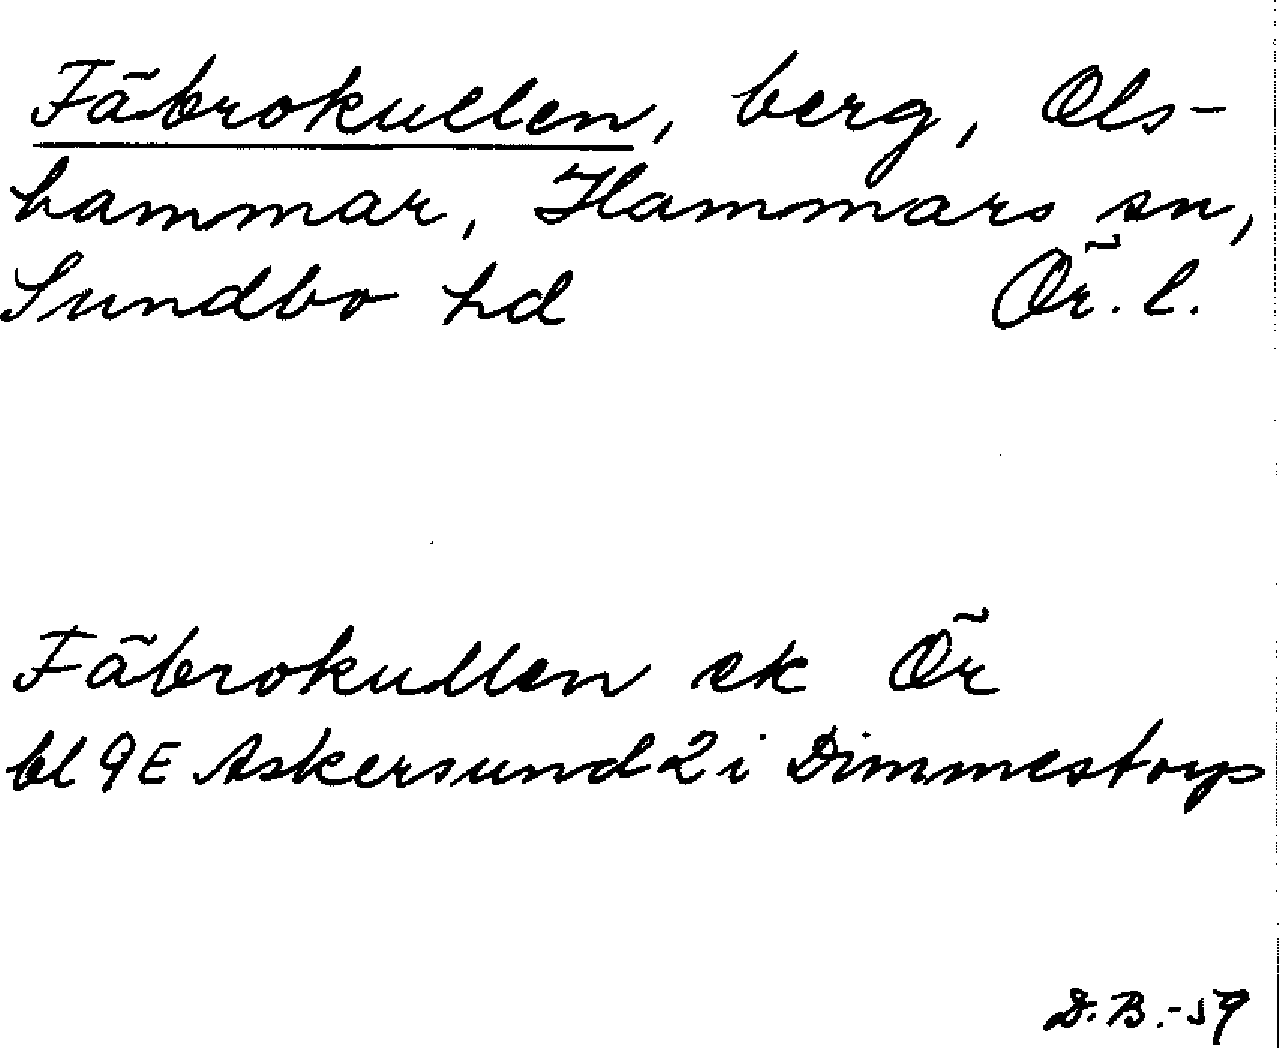 Fäbrokullen, berg, Ols-
hammar, Hammars sn,
Sundbo hd Ör. l.
Fäbrokullen ek Ör
bl 9E Askersund 2 i Dimmestorp
D.B.-59